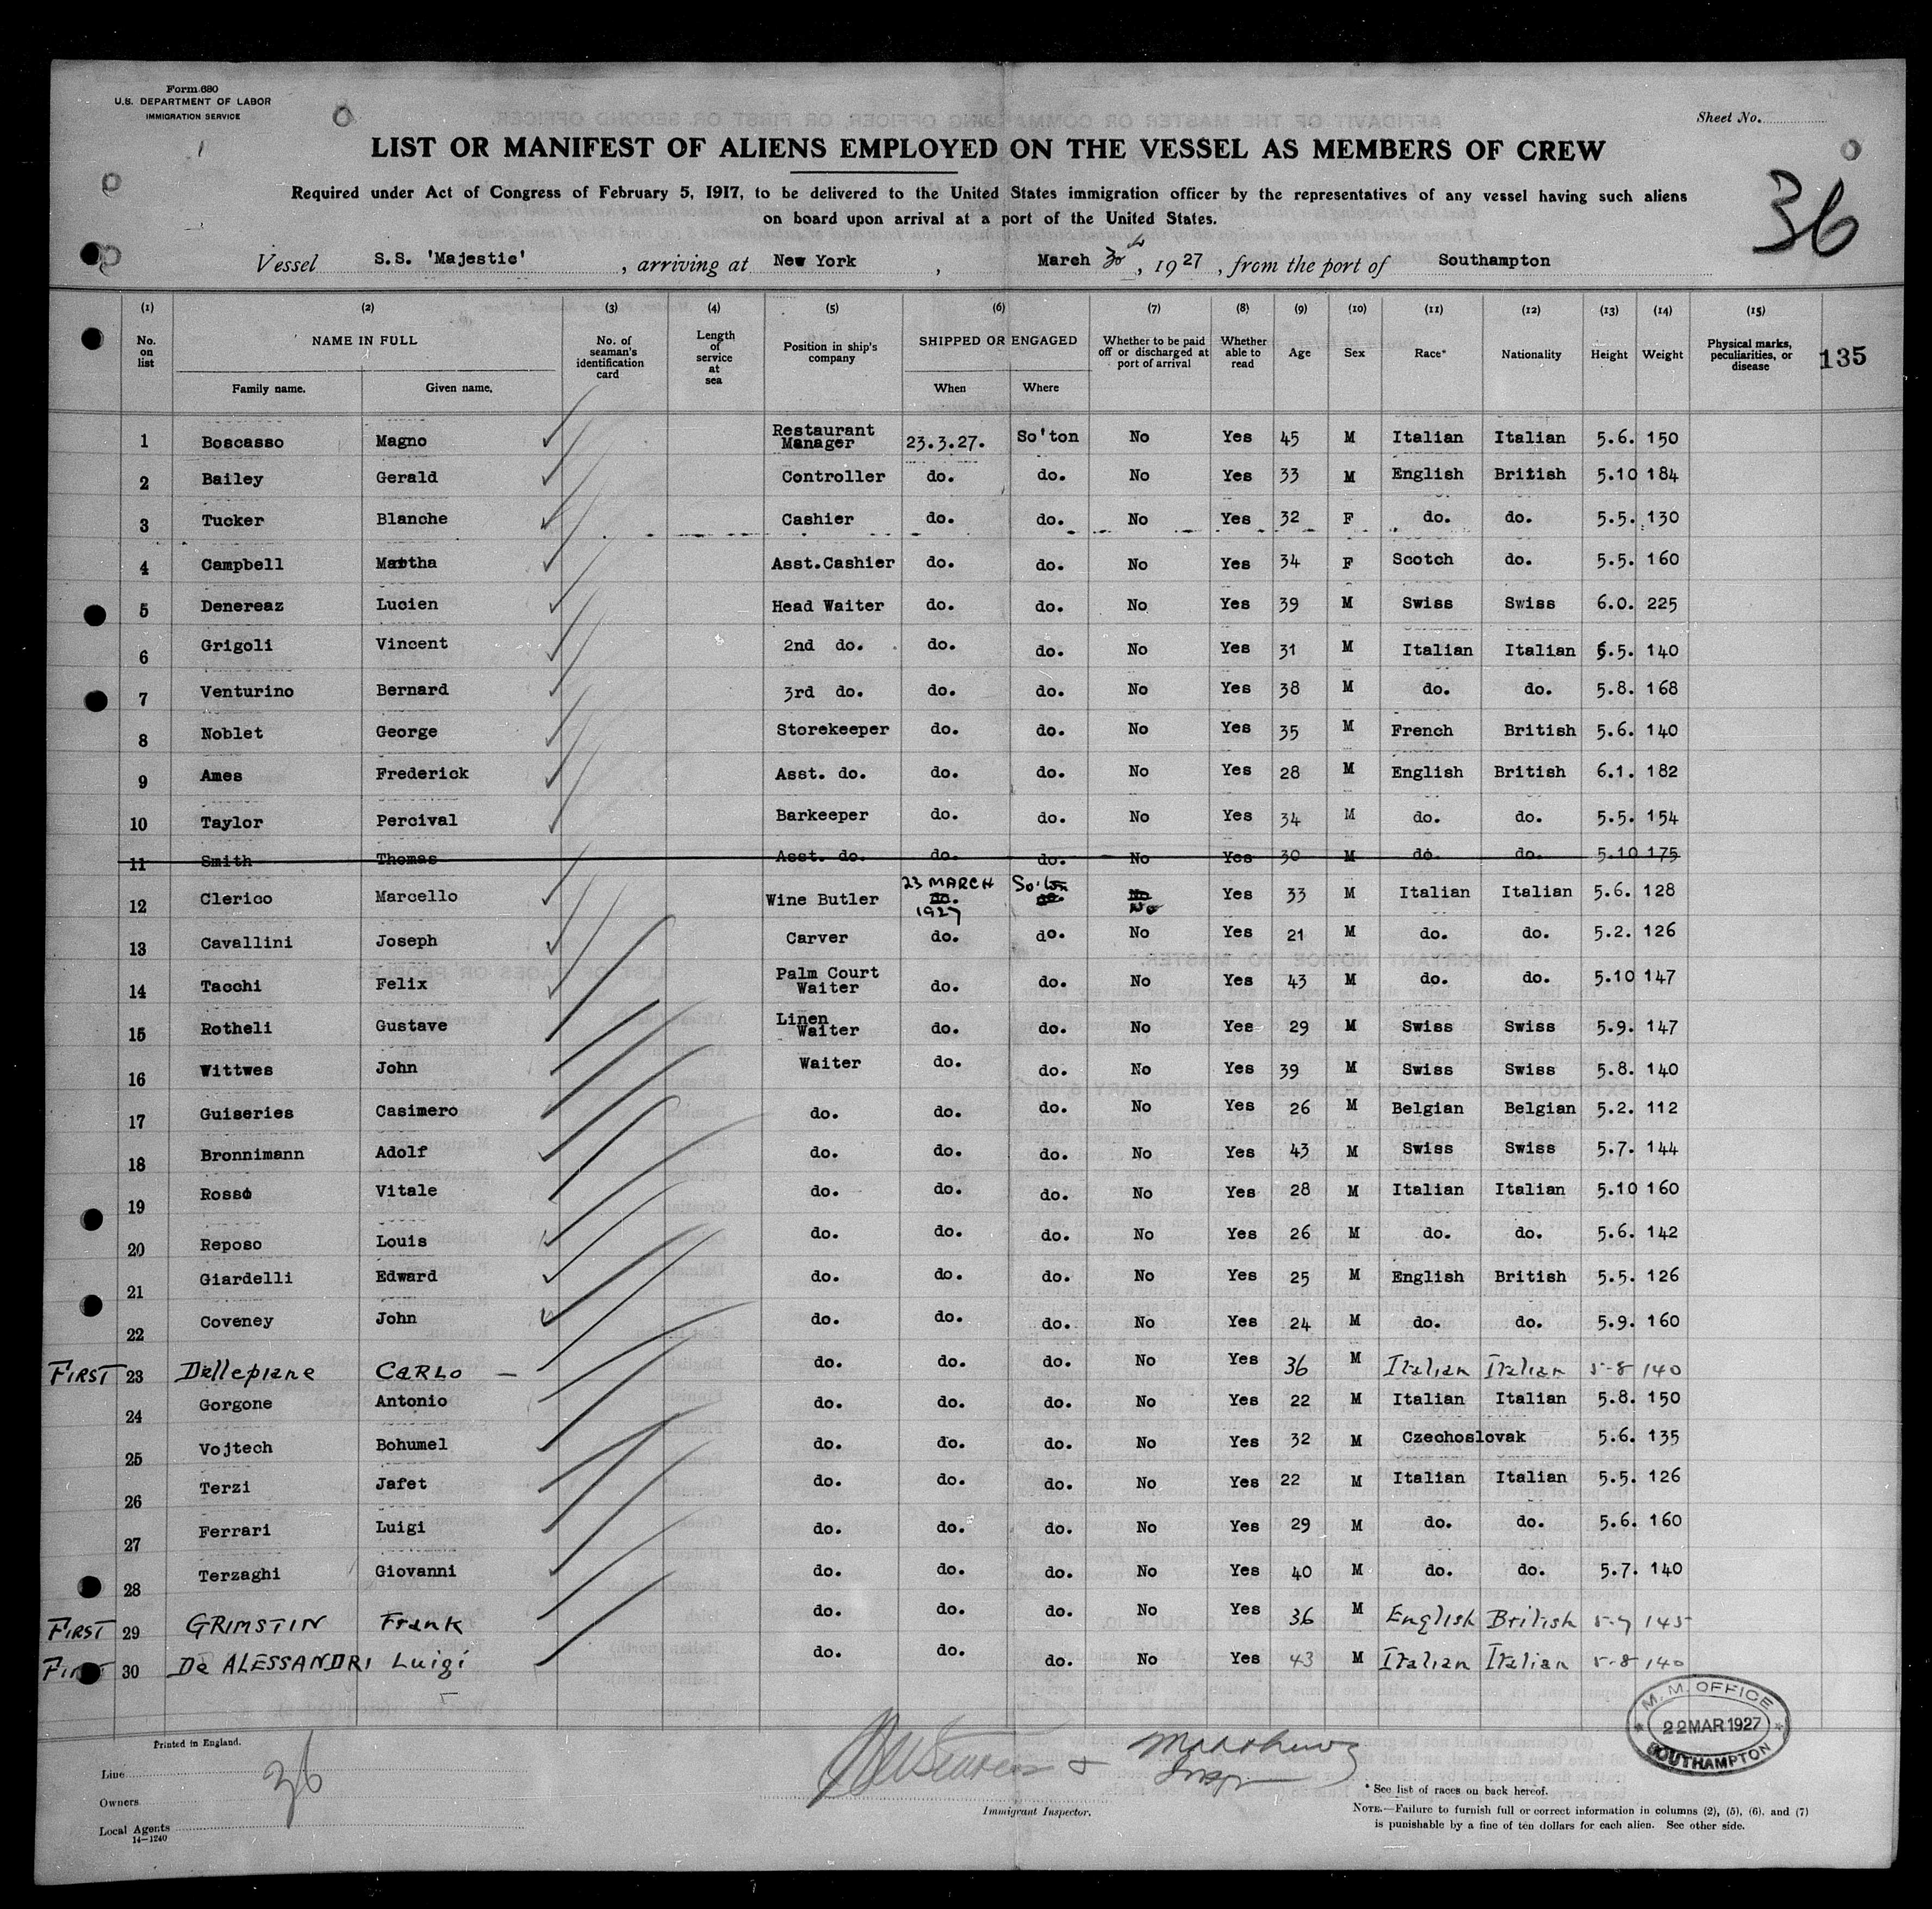 Form 680
U.S. DEPARTMENT OF LABOR
IMMIGRATION SERVICE
Sheet No.
LIST OR MANIFEST OF ALIENS EMPLOYED ON THE VESSEL AS MEMBERS OF CREW
36
Required under Act of Congress of February 5, 1917, to be delivered to the United States immigration officer by the representatives of any vessel having such aliens
on board upon arrival at a port of the United States.
Vessel S.S. 'Majestic' , arriving at New York , March 30 , 1927 , from the port of Southampton
(1) (2) (3) (4) (5) (6) (7) (8) (9) (10) (11) (12) (13) (14) (15)
No. on list NAME IN FULL Family name. Given name. No. of seaman's identification card Length of service at sea Position in ship's company SHIPPED OR ENGAGED When Where Whether to be paid off or discharged at port of arrival Whether able to read Age Sex Race* Nationality Height Weight Physical marks, peculiarities, or disease 135
1 Boscasso Magno Restaurant Manager 23.3.27. So'ton No Yes 45 M Italian Italian 5.6. 150
2 Bailey Gerald Controller do. do. No Yes 33 M English British 5.10 184
3 Tucker Blanche Cashier do. do. No Yes 32 F do. do. 5.5. 130
4 Campbell Martha Asst.Cashier do. do. No Yes 34 F Scotch do. 5.5. 160
5 Denereaz Lucien Head Waiter do. do. No Yes 39 M Swiss Swiss 6.0. 225
6 Grigoli Vincent 2nd do. do. do. No Yes 31 M Italian Italian 5.5. 140
7 Venturino Bernard 3rd do. do. do. No Yes 38 M do. do. 5.8. 168
8 Noblet George Storekeeper do. do. No Yes 35 M French British 5.6. 140
9 Ames Frederick Asst. do. do. do. No Yes 28 M English British 6.1. 182
10 Taylor Percival Barkeeper do. do. No Yes 34 M do. do. 5.5. 154
11 Smith Thomas Asst. do. do. do. No Yes 30 M do. do. 5.10 175
12 Clerico Marcello Wine Butler 23 MARCH 1927 So'ton No Yes 33 M Italian Italian 5.6. 128
13 Cavallini Joseph Carver do. do. No Yes 21 M do. do. 5.2. 126
14 Tacchi Felix Palm Court Waiter do. do. No Yes 43 M do. do. 5.10 147
15 Rotheli Gustave Linen Waiter do. do. No Yes 29 M Swiss Swiss 5.9. 147
16 Wittwes John Waiter do. do. No Yes 39 M Swiss Swiss 5.8. 140
17 Guiseries Casimero do. do. do. No Yes 26 M Belgian Belgian 5.2. 112
18 Bronnimann Adolf do. do. do. No Yes 43 M Swiss Swiss 5.7. 144
19 Rosso Vitale do. do. do. No Yes 28 M Italian Italian 5.10 160
20 Reposo Louis do. do. do. No Yes 26 M do. do. 5.6. 142
21 Giardelli Edward do. do. do. No Yes 25 M English British 5.5. 126
22 Coveney John do. do. do. No Yes 24 M do. do. 5.9. 160
FIRST 23 Dellepiane CARLO do. do. do. No Yes 36 M Italian Italian 5-8 140
24 Gorgone Antonio do. do. do. No Yes 22 M Italian Italian 5.8. 150
25 Vojtech Bohumel do. do. do. No Yes 32 M Czechoslovak 5.6. 135
26 Terzi Jafet do. do. do. No Yes 22 M Italian Italian 5.5. 126
27 Ferrari Luigi do. do. do. No Yes 29 M do. do. 5.6. 160
28 Terzaghi Giovanni do. do. do. No Yes 40 M do. do. 5.7. 140
FIRST 29 GRIMSTIN Frank do. do. do. No Yes 36 M English British 5-7 145
FIRST 30 De ALESSANDRI Luigi do. do. do. No Yes 43 M Italian Italian 5-8 140
M. M. OFFICE
22 MAR 1927
SOUTHAMPTON
Printed in England.
Line
36
Owners
Local Agents
14-1240
Immigrant Inspector.
* See list of races on back hereof.
NOTE.—Failure to furnish full or correct information in columns (2), (5), (6), and (7)
is punishable by a fine of ten dollars for each alien. See other side.